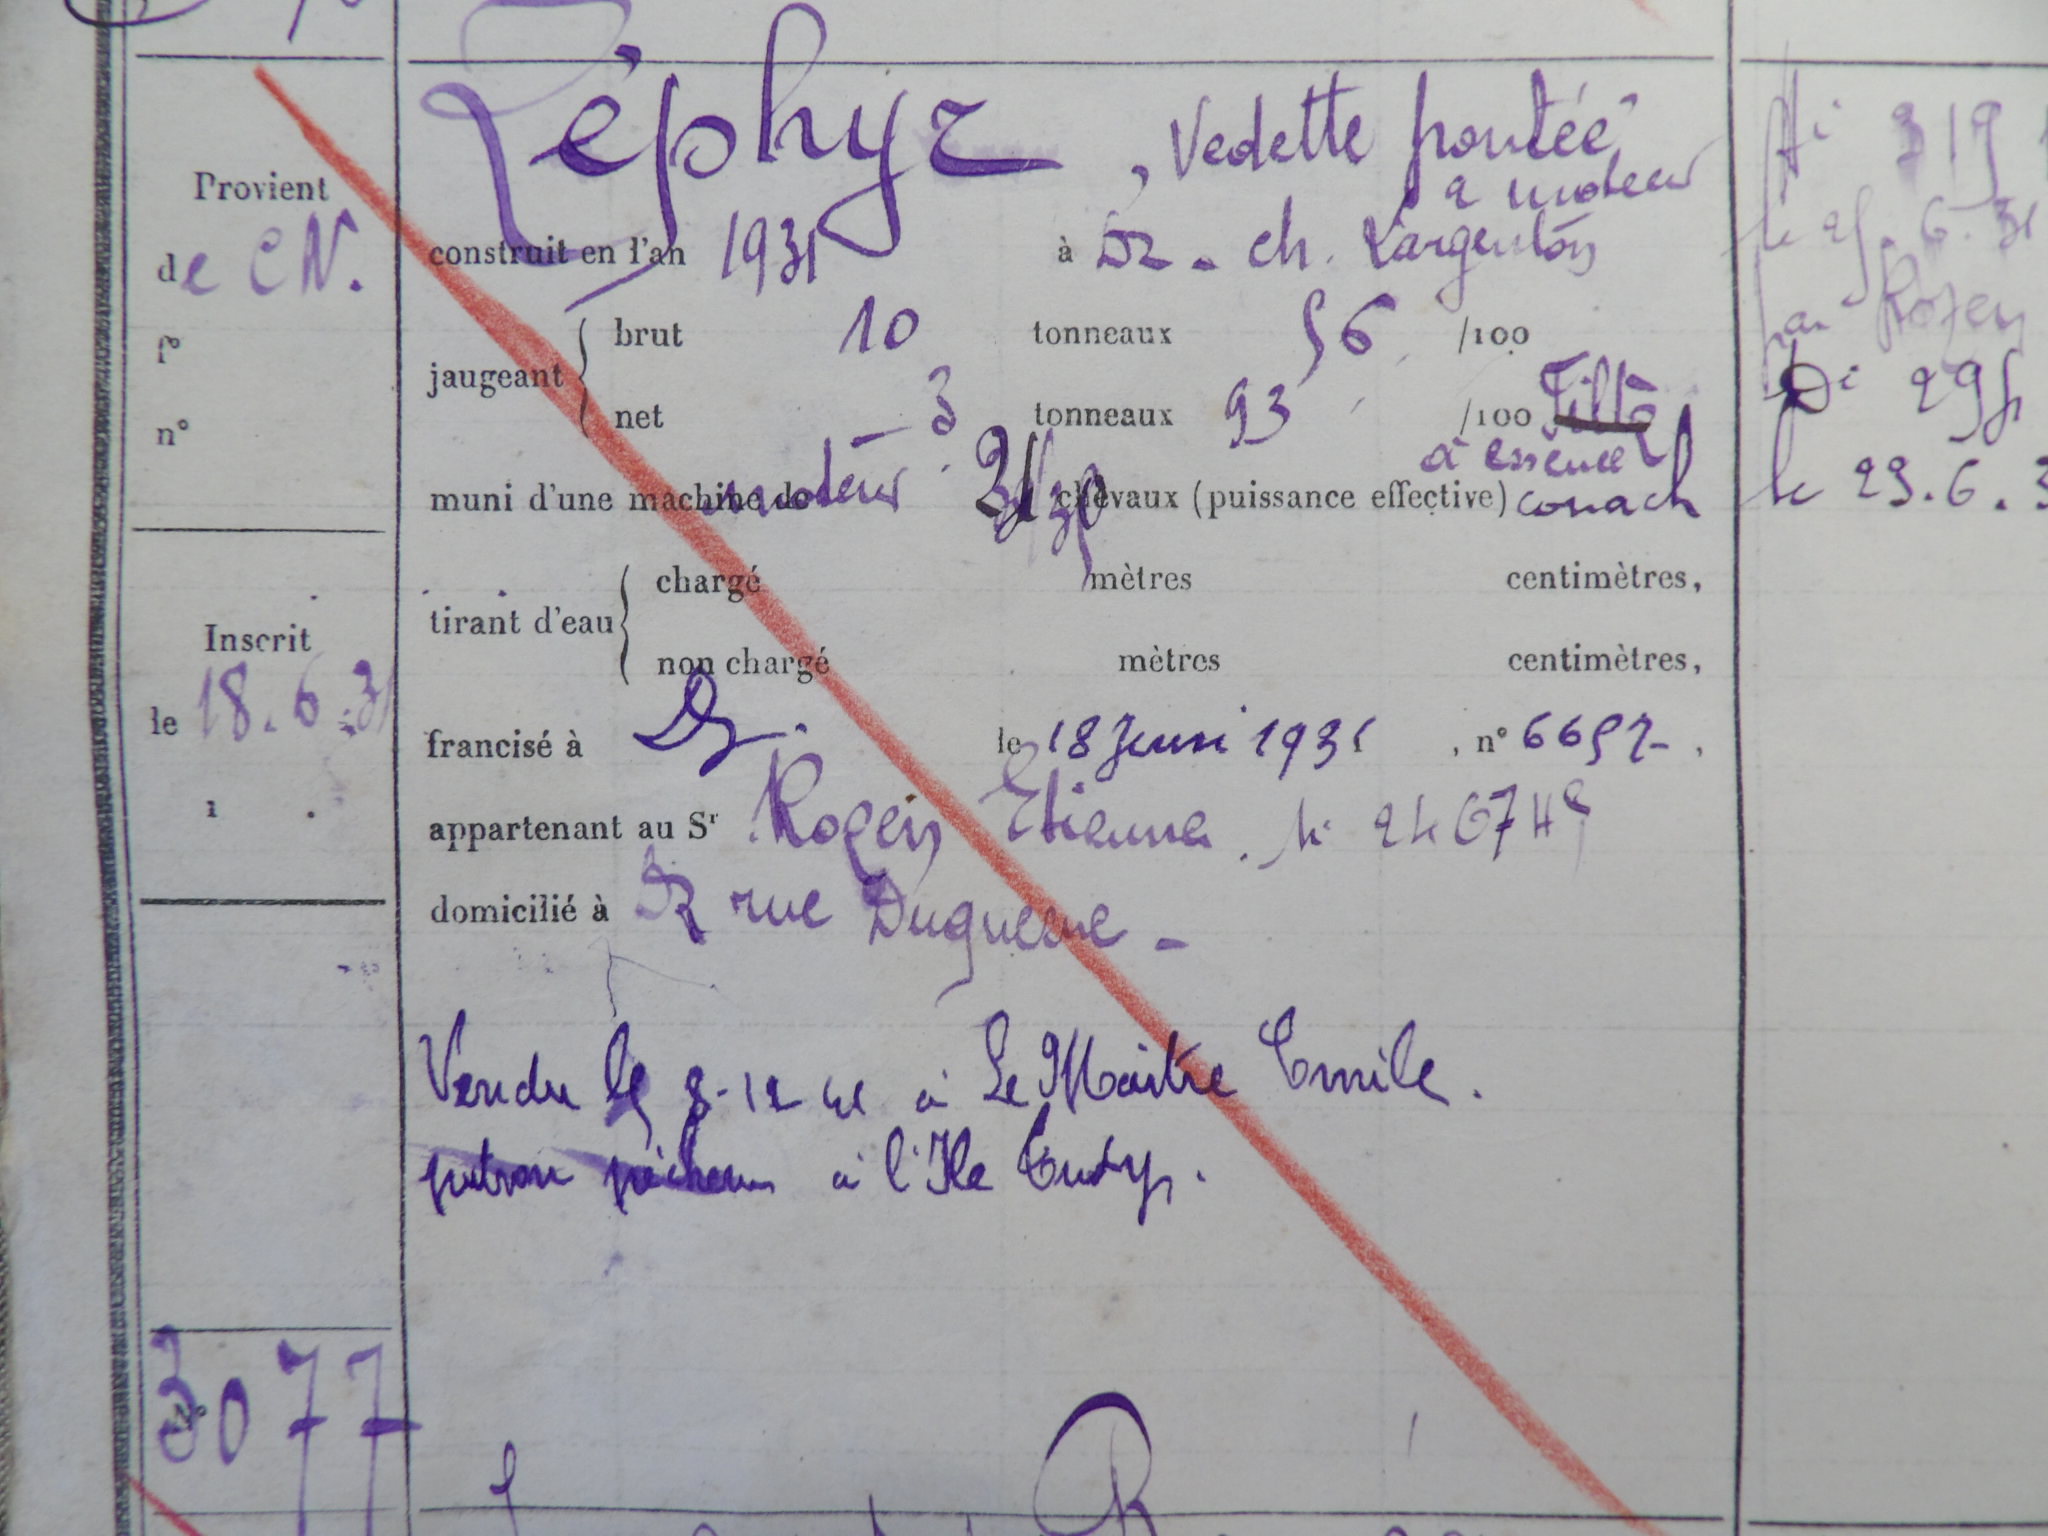 Zéphyr, Vedette pontée
à moteur
Provient
de C N.
f°
n°
construit en l'an 1931 à Dz. ch. Largenton
jaugeant
brut 10 tonneaux 56 /100
net 3 tonneaux 93 /100
à essence
muni d'une machine de moteur chevaux (puissance effective) conach
tirant d'eau
chargé mètres centimètres,
non chargé mètres centimètres,
Inscrit
le 18.6.31
francisé à Dz. le 18 Juin 1931, n° 6657,
appartenant au Sr Etienne.
domicilié à Dz rue Duquesne -
Vendu le 8-12 41 à Le Maître Emile.
patron pêcheur à l'Ile Tudy.
Ai 319
le 25.6.31
par
Di 295
le 29.6.3
3077